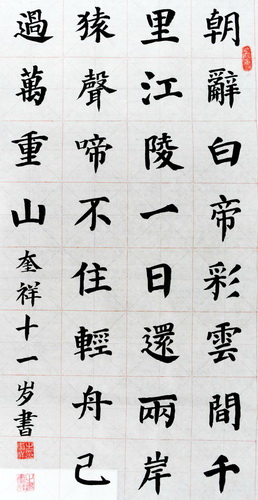 朝辭白帝彩雲間千
里江陵一日還兩岸
猿聲啼不住輕舟已
過萬重山
奎祥十一岁書